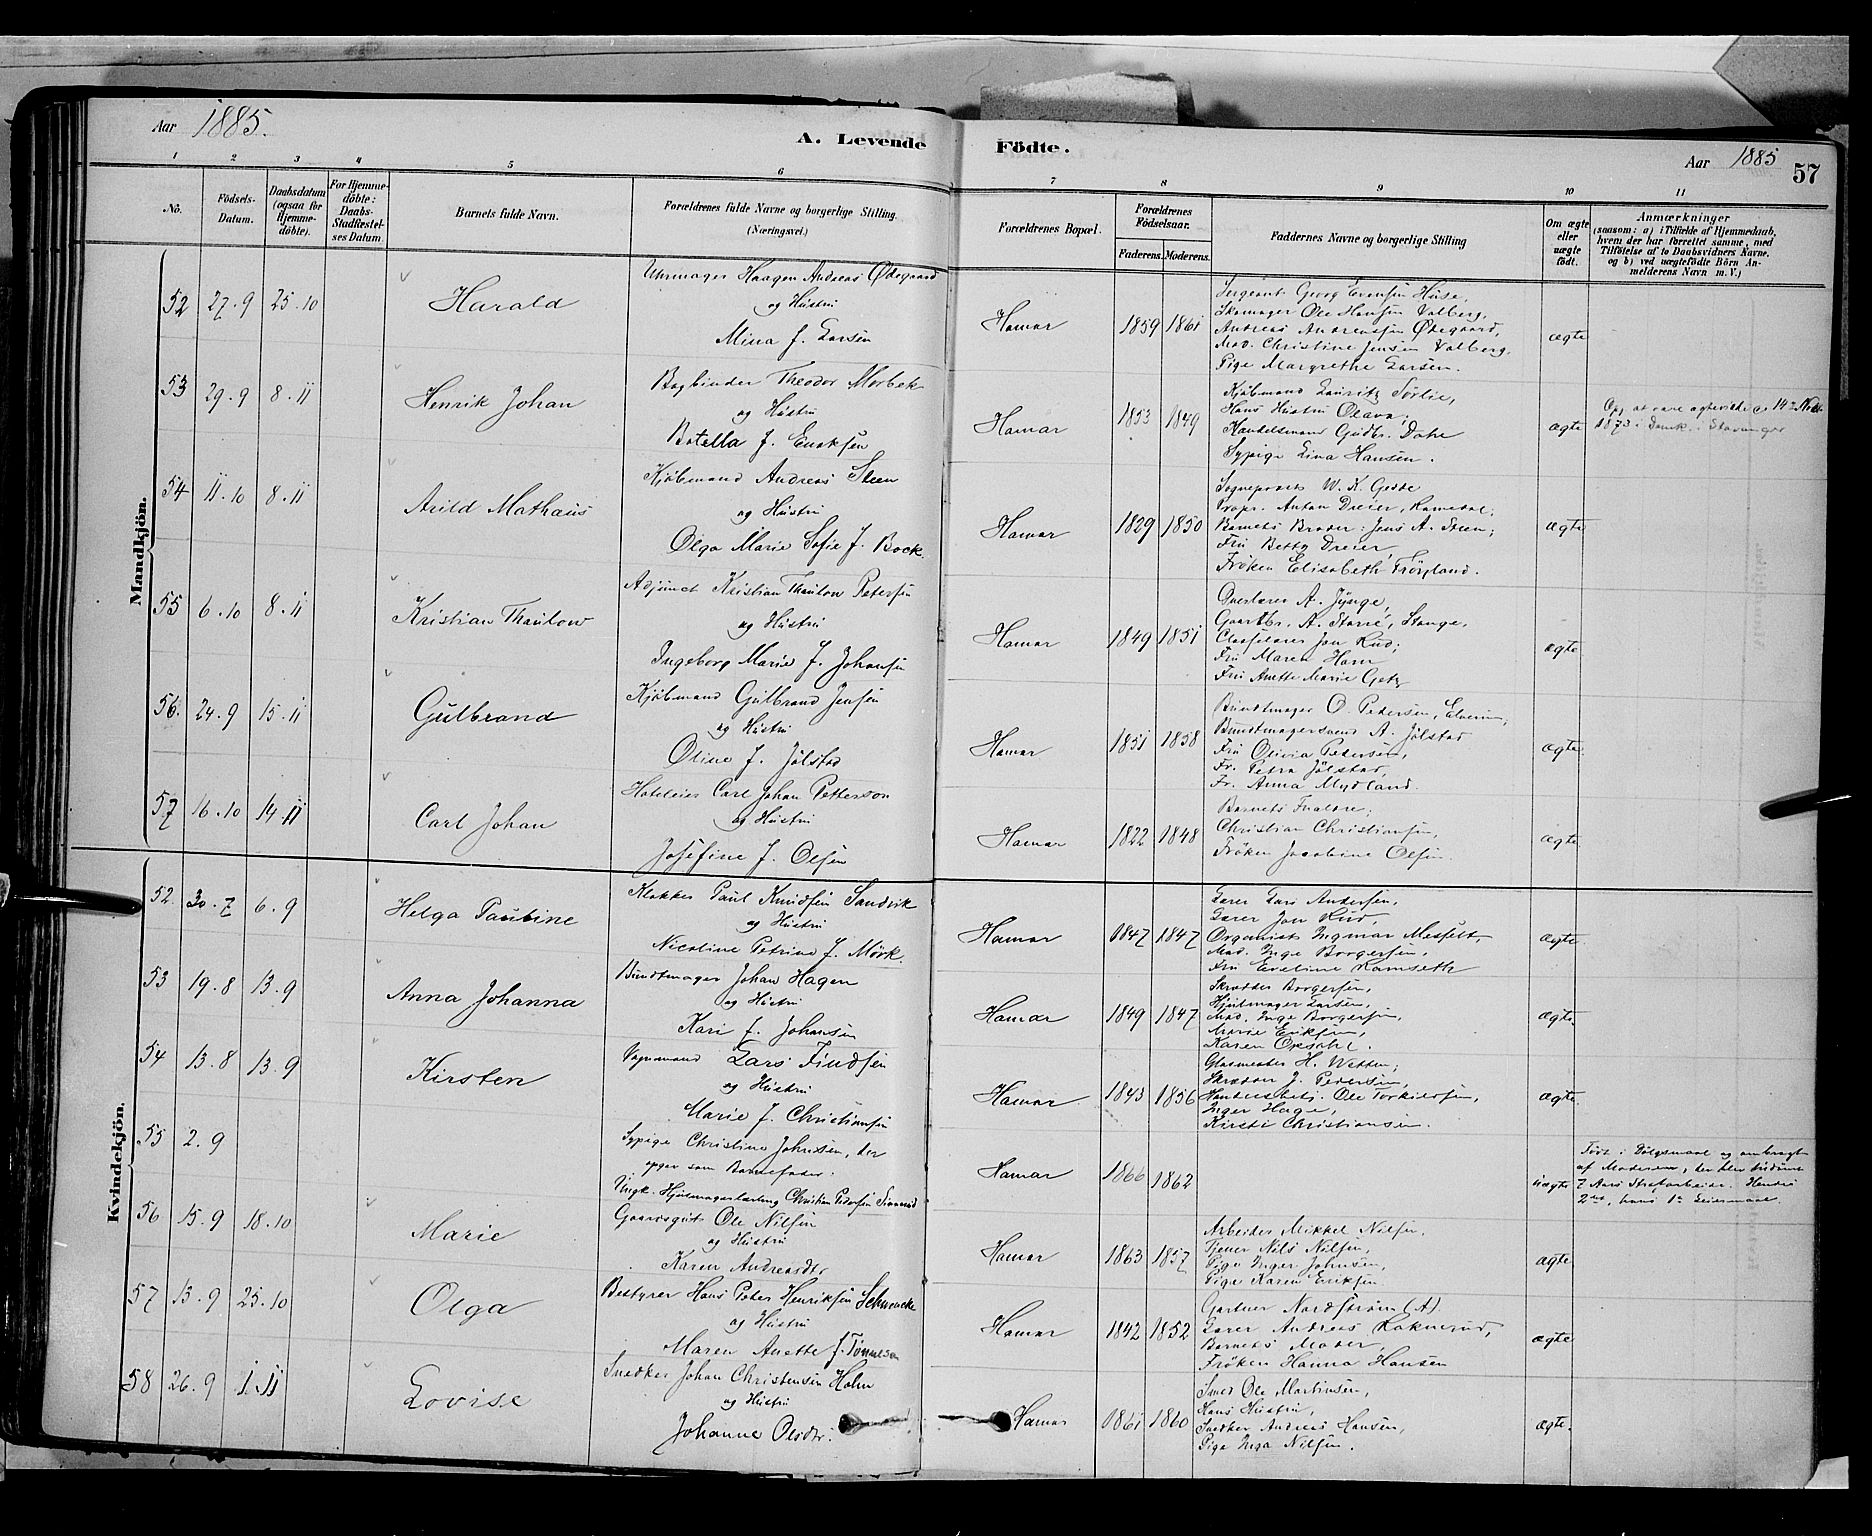 Aar 1885.
A. Levende Födte.
Aar 1885
57
1 2 3 4 5 6 7 8 9 10 11
No.
Födsels-Datum.
Daabsdatum (ogsaa for Hjemme-döbte).
For Hjemme-döbte: Daabs-Stadfæstel-ses Datum.
Barnets fulde Navn.
Forældrenes fulde Navne og borgerlige Stilling. (Næringsvei.)
Forældrenes Bopæl.
Forældrenes Födselsaar.
Faderens. Moderens.
Faddernes Navne og borgerlige Stilling
Om ægte eller uægte födt.
Anmærkninger
(saasom: a) i Tilfælde af Hjemmedaab, hvem der har forrettet samme, med Tilföielse af to Daabsvidners Navne, og b) ved uægtefödte Börn An-melderens Navn m. V.)
Mandkjön.
52 27.9 25.10 Harald
Uhrmager Haagen Andreas Ødegaard
og Hustru
Mina f. Larsen
Hamar 1859 1861
Sergeant Georg Evensen Huse,
Skomager Ole Hansen Valberg,
Andreas Andreassen Ødegaard,
Mad. Christine Jensen Valberg.
Pige Margrethe Larsen.
ægte
53 29.9 8.11 Henrik Johan
Bogbinder Theodor Mörbek
og Hustru
Botella f. Enoksen
Hamar 1853 1849
Kjøbmand Lauritz Sörlie,
Hans Hustru Olava.
Handelsmand Gudbr. Dahl
Sypige Lina Hansen.
ægte
Opg. at være ægteviede
1873 i Stavanger
54 11.10 8.11 Arild Mathæus
Kjöbmand Andreas Steen
og Hustru
Olga Marie Sofie f. Bock.
Hamar 1829 1850
Sogneprest W. K.
Propr. Anton Dreier,
Barnets Broder: Jens A. Steen;
Fru Betty Dreier,
Fröken Elisabeth Fröyland.
ægte
55 6.10 8.11 Kristian Thaulow
Adjunct Kristian Thaulow Petersen
og Hustru
Ingeborg Marie f. Johansen
Hamar 1849 1851
Overlærer A. Jynge,
Gaardbr. A. Starri, Stange,
Jon Rud;
Fru Maren Horn
Fru Anette Marie Getz
ægte
56. 24.9 15.11 Gulbrand
Kjöbmand Gulbrand Jensen
og Hustru
Oline f. Jölstad
Hamar 1851 1858
Bundtmager O. Pedersen, Elverum;
Bundtmagersvend A. Jölstad
Fru Olivia Pedersen,
Fr. Petra Jölstad,
Fr. Anna Mydland.
ægte.
57 16.10 14.11 Carl Johan
Hoteleier Carl Johan Petterson
og Hustru
Josefine f. Olsen
Hamar 1822 1848
Barnets Forældre;
Christian Christiansen,
Fröken Jacobine Olsen.
ægte.
Kvindekjön.
52. 30.7 6.9 Helga Pauline
Klokker Paul Knudsen Sandvik
og Hustru
Nicoline Petrine f. Mörk.
Hamar 1847 1847
Lærer Lars Andersen,
Lærer Jon Rud,
Organist Ingmar Messelt,
Mad. Inge Borgersen,
Fru Eveline Ramseth
ægte
53 19.8 13.9 Anna Johanna
Bundtmager Johan Hagen
og Hustru
Kari f. Johansen
Hamar 1849 1847
Skrædder Borgersen,
Hjulmager Larsen,
Mad. Inge Borgersen,
Marie Eriksen,
Karen Opsahl.
ægte.
54 13.8 13.9 Kirsten
Vognmand Lars Findsen
og Hustru
Marie f. Christiansen
Hamar 1843 1856
Glasmester H. Wetten;
Skrædder J. Pedersen,
Ole Torkildsen,
Inger Hage,
Kirsti Christiansen.
ægte.
55 2.9
Sypige Christine Johnsen, der
opgav som Barnefader:
Ungk. Hjulmagerlærling Christian Pedersen
Hamar 1866 1862
uægte
Född i Dölgsmaal og ombragt
af Moderen, der blev
7 Aars Strafarbeide. Hendes
2det, hans 1ste Leiermaal.
56 15.9 18.10 Marie
Gaardsgut Ole Nilsen
og Hustru
Karen Andreasdtr
Hamar 1863 1857
Arbeider Mikkel Nilsen,
Tjener Nils Nilsen,
Pige Inger Johnsen,
Pige Karen Eriksen
ægte
57 13.9 25.10 Olga
Bestyrer Hans Peter Henriksen Schwencke
og Hustru
Maren Anette f. Tönnesen
Hamar 1842 1852
Gartner Nordström (A).
Lærer Andreas Raknerud,
Barnets Moder,
Fröken Hanna Hansen
ægte
58 26.9 1.11 Lovise
Snedker Johan Christensen Holm
og Hustru
Johanne Olsdtr.
Hamar 1861 1860
Smed Ole Martinsen,
Hans Hustru,
Snedker Andreas Hansen,
Pige Inga Nilsen.
ægte.